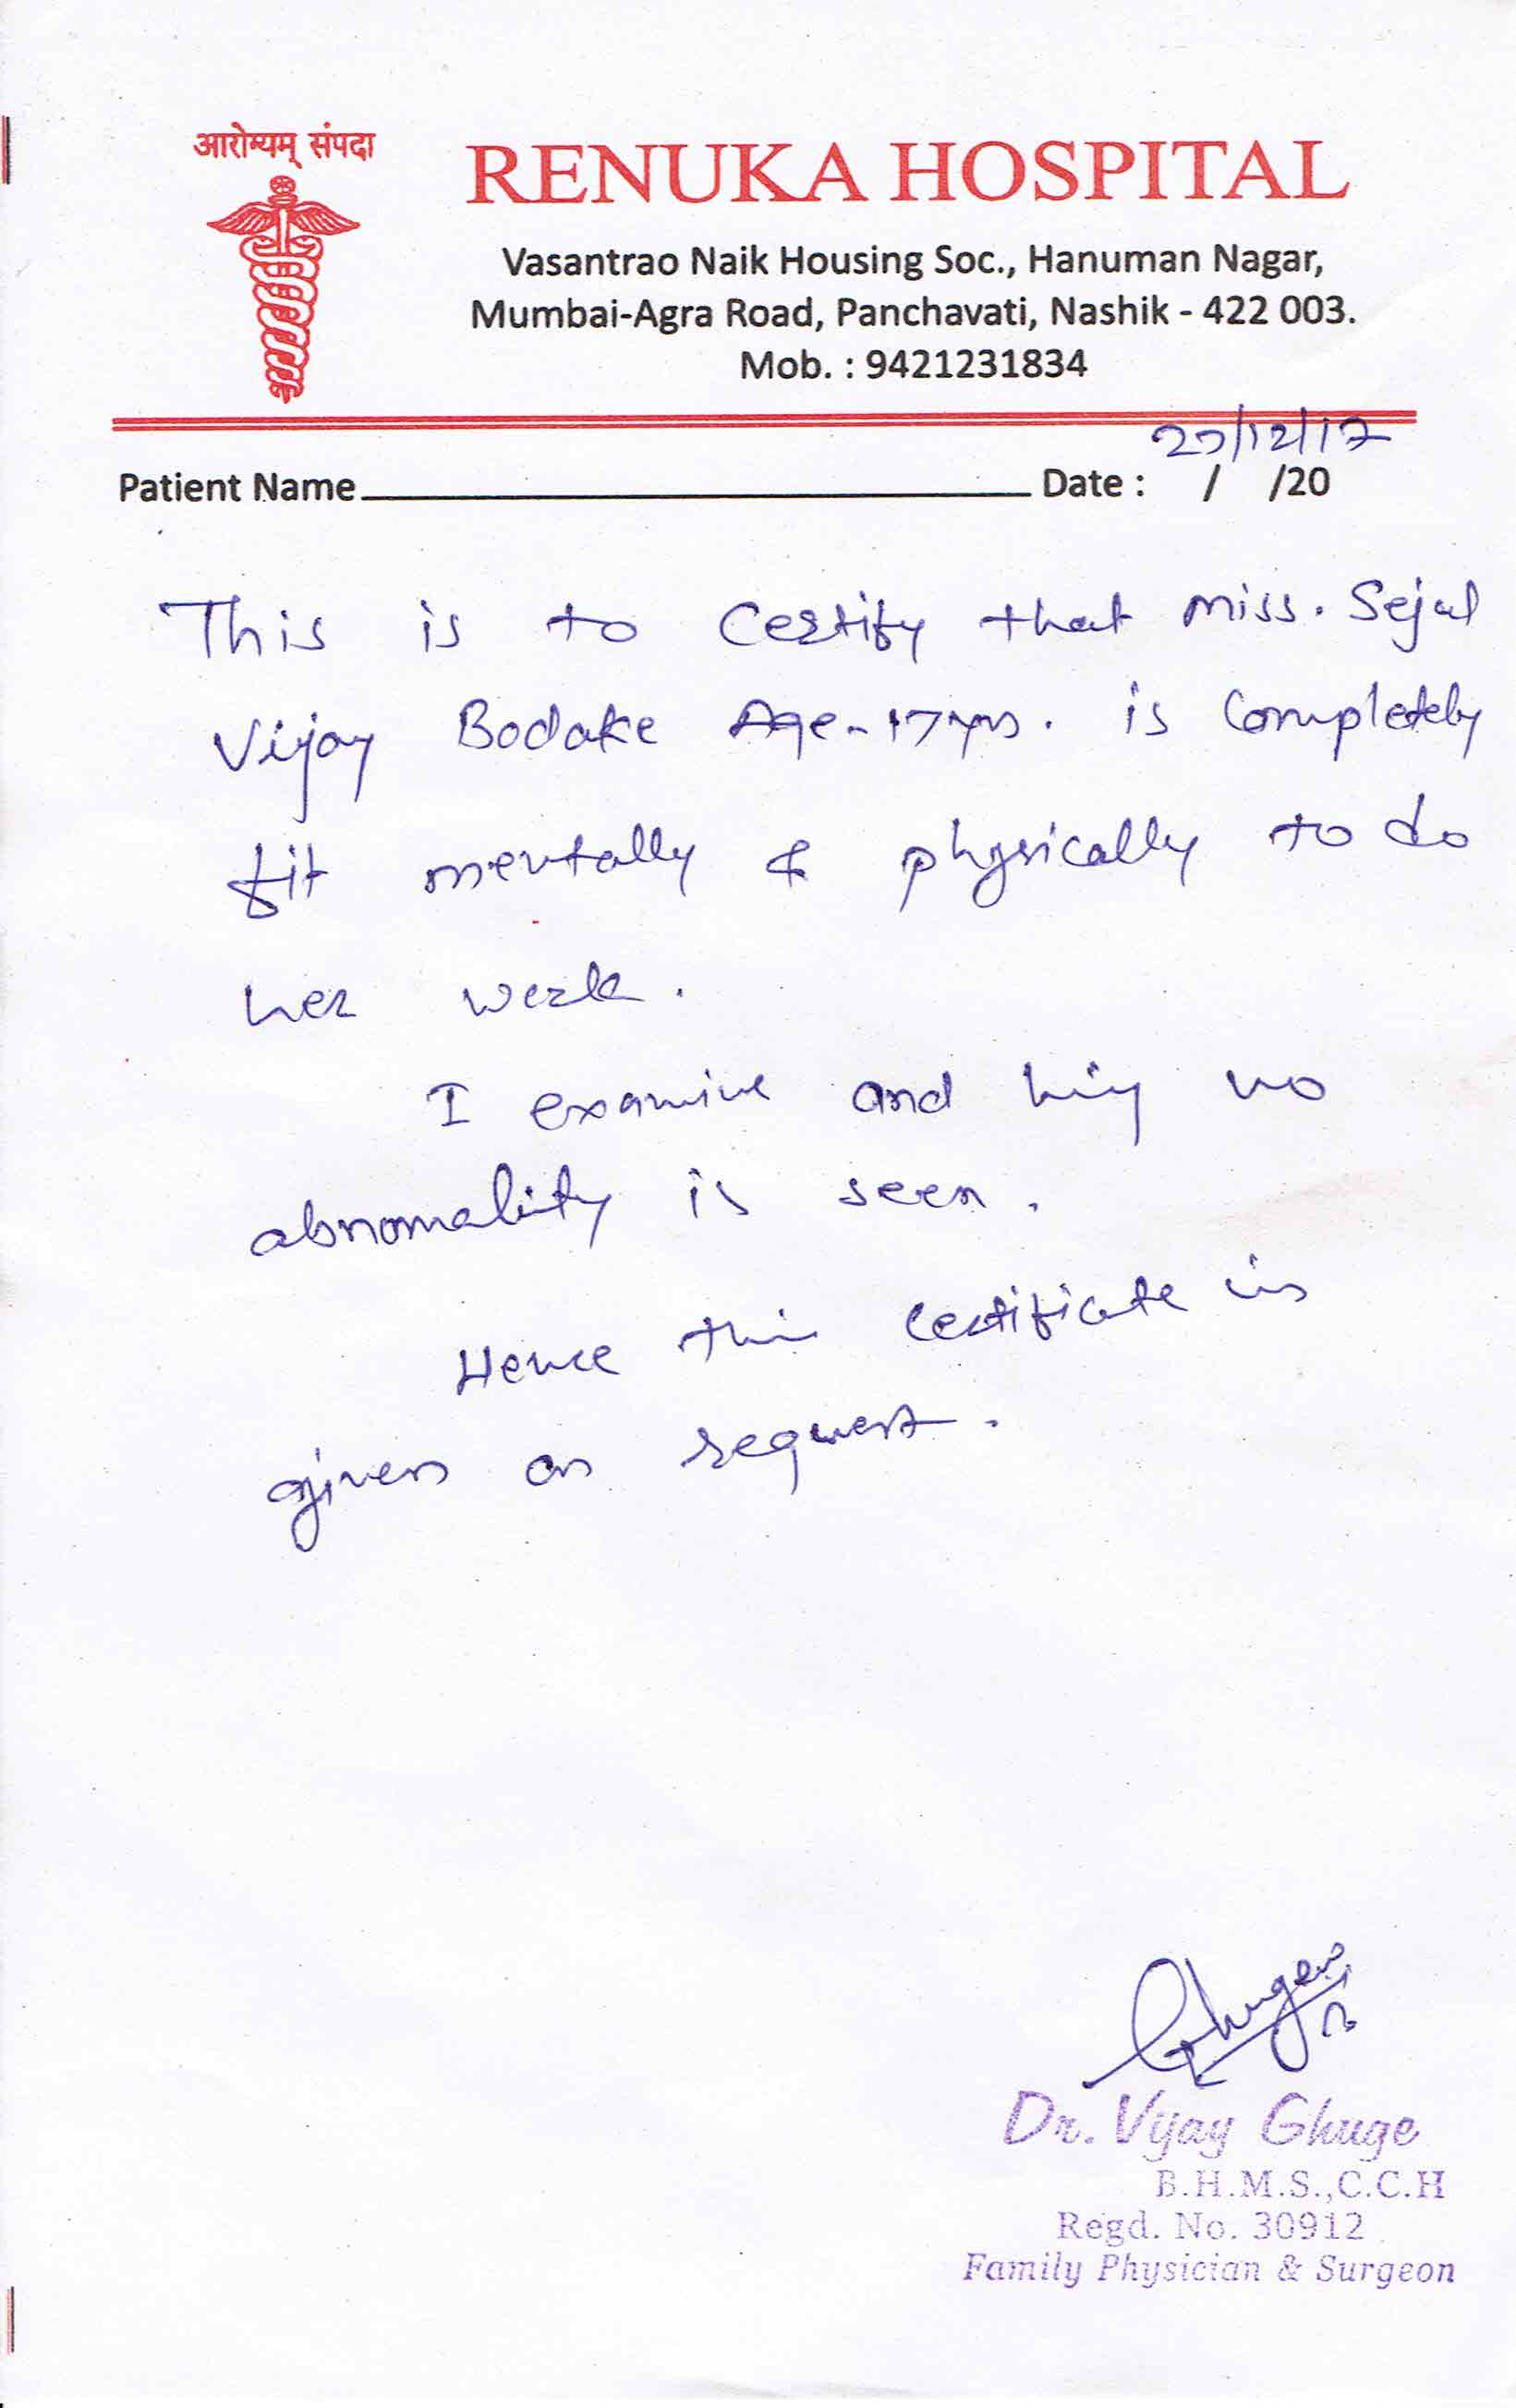 आरोग्यम् संपदा
RENUKA HOSPITAL
Vasantrao Naik Housing Soc., Hanuman Nagar,
Mumbai-Agra Road, Panchavati, Nashik - 422 003.
Mob. : 9421231834
/12/17
Patient Name Date : / /20
This is to Certify that Miss. Sejal
Vijay Bodake Age-17yrs. is Completely
fit mentally & physically to do
her work.
I examine and no
abnomality is seen.
Hence this certificate is
given on request.
Dr. Vijay Ghuge
B.H.M.S.,C.C.H
Regd. No. 30912
Family Physician & Surgeon